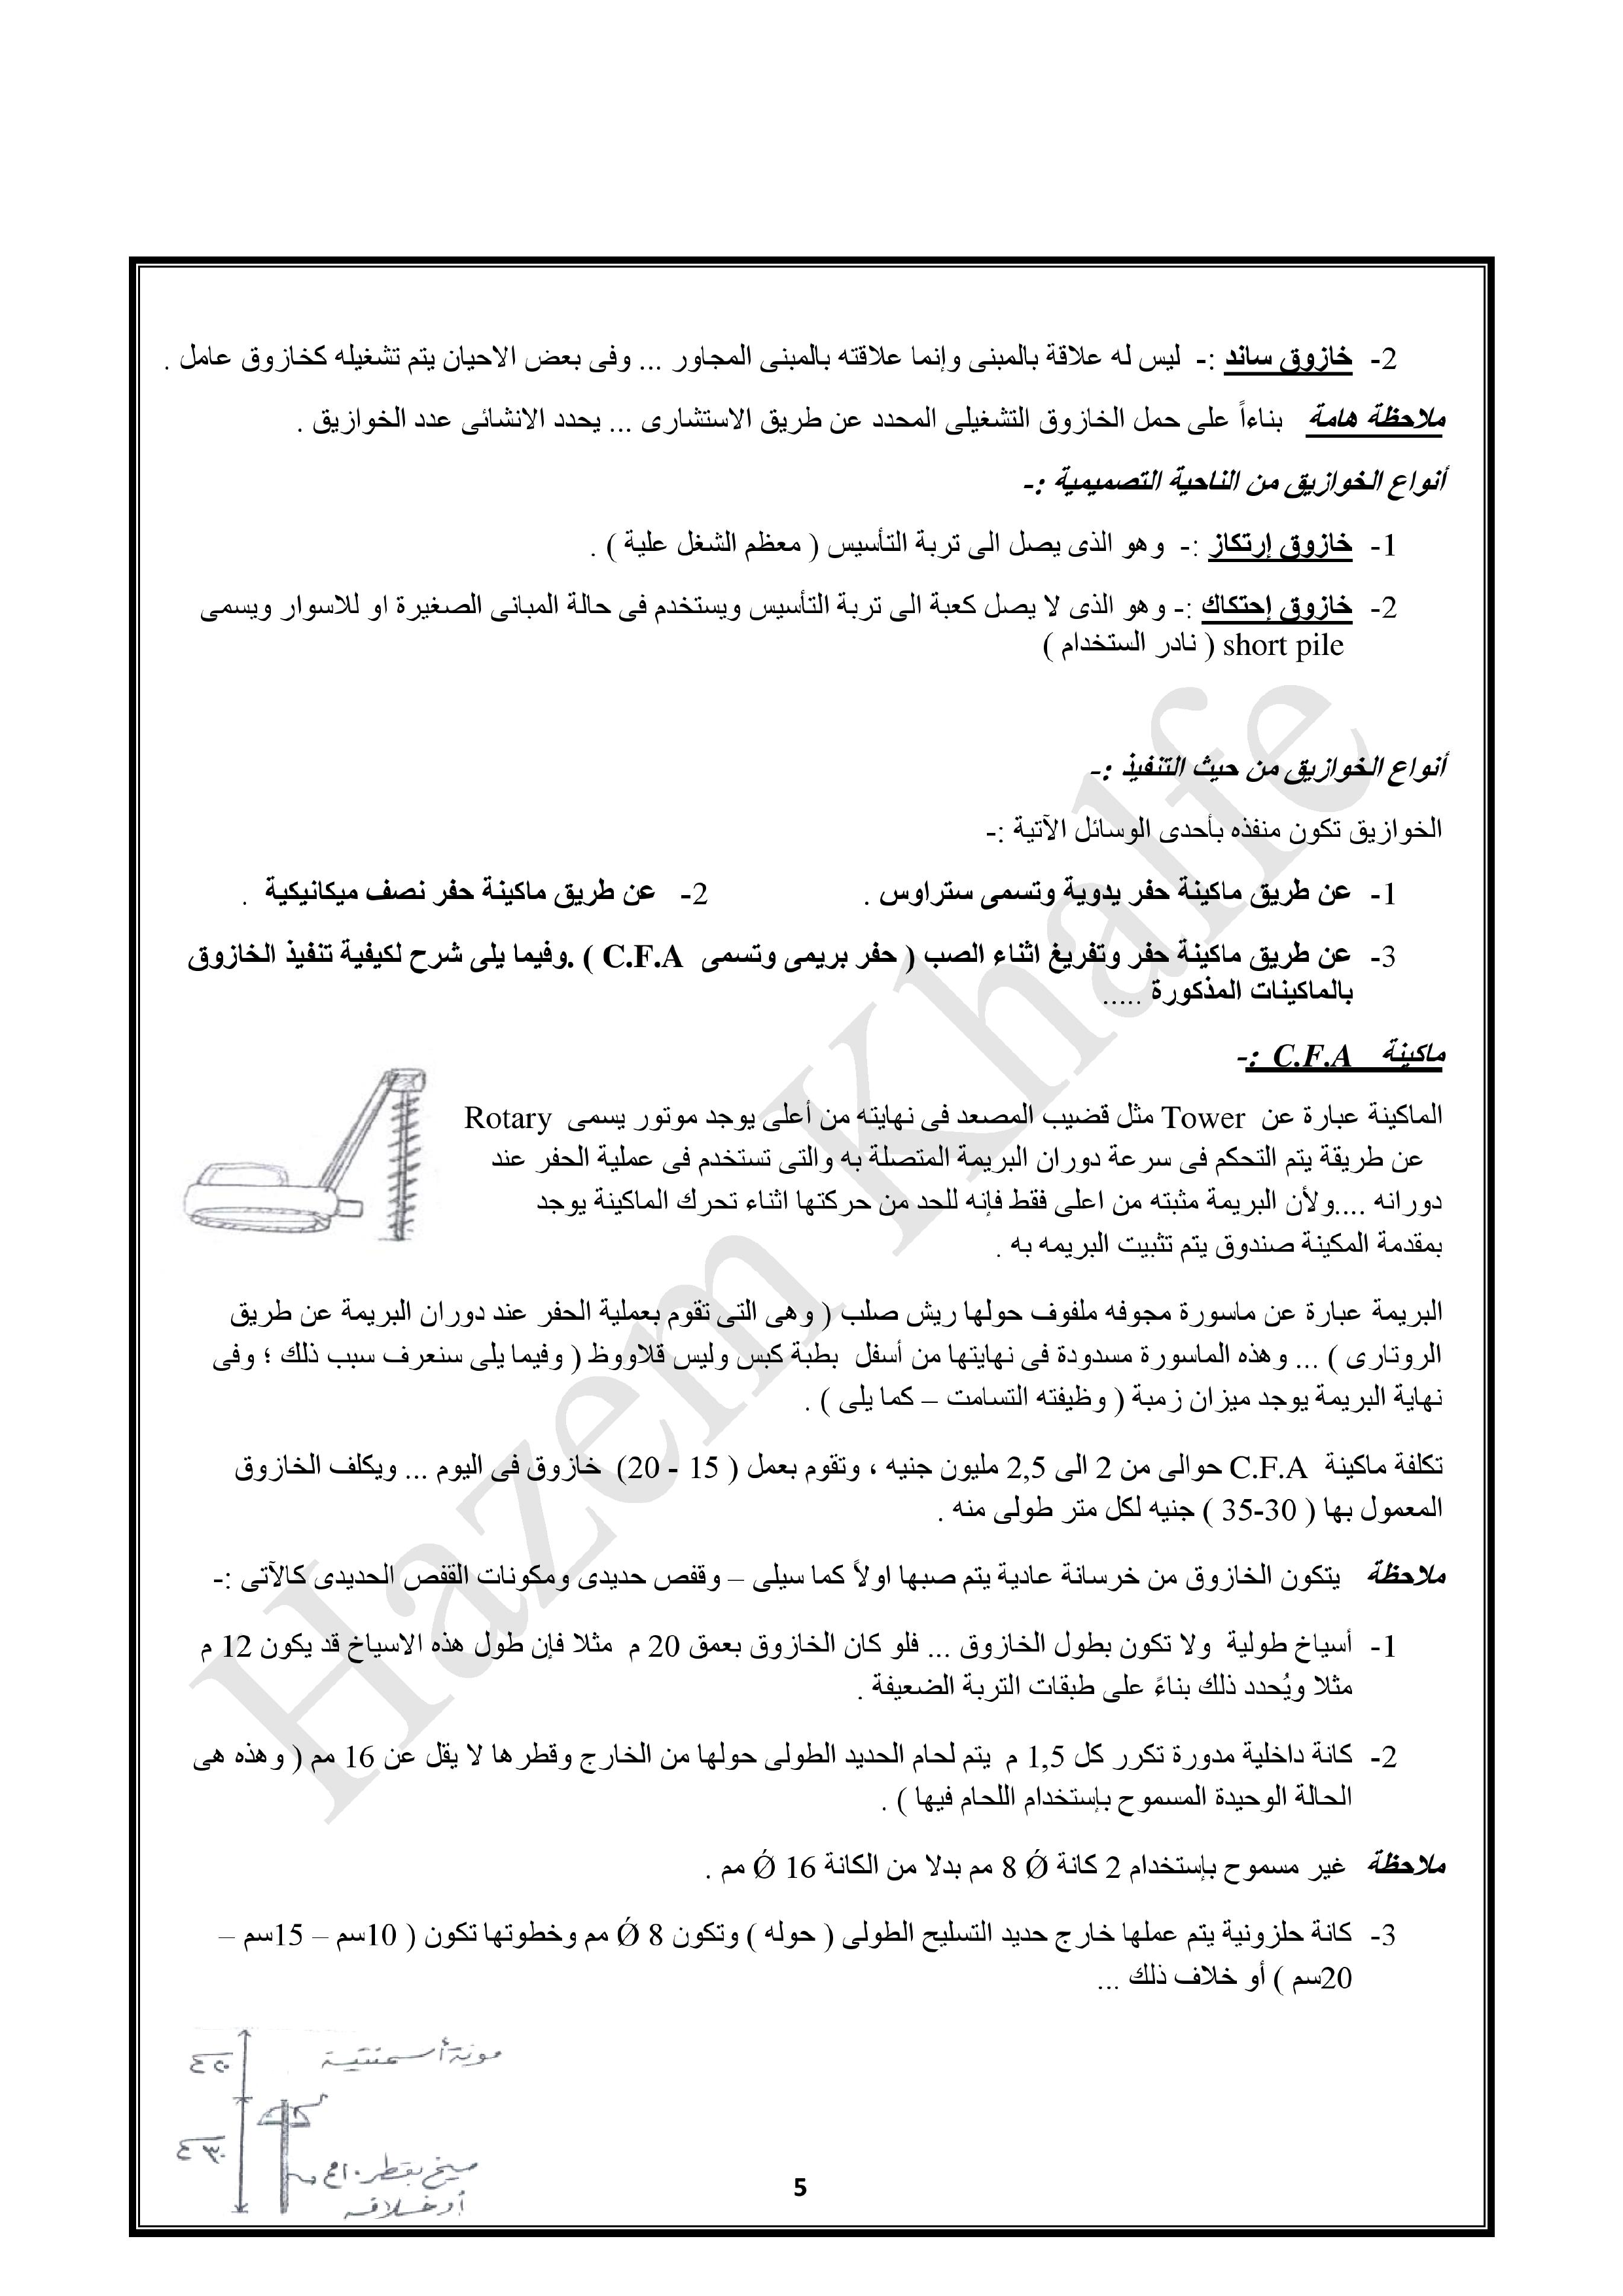 2- خازوق ساند :- ليس له علاقة بالمبنى وإنما علاقته بالمبنى المجاور ... وفى بعض الاحيان يتم تشغيله كخازوق عامل .
ملاحظة هامة بناءاً على حمل الخازوق التشغيلى المحدد عن طريق الاستشارى ... يحدد الانشائى عدد الخوازيق .
أنواع الخوازيق من الناحية التصميمية :-
1- خازوق إرتكاز :- وهو الذى يصل الى تربة التأسيس ( معظم الشغل علية ) .
2- خازوق إحتكاك :- وهو الذى لا يصل كعبة الى تربة التأسيس ويستخدم فى حالة المبانى الصغيرة او للاسوار ويسمى
short pile ( نادر الستخدام )
أنواع الخوازيق من حيث التنفيذ :-
الخوازيق تكون منفذه بأحدى الوسائل الآتية :-
1- عن طريق ماكينة حفر يدوية وتسمى ستراوس . 2- عن طريق ماكينة حفر نصف ميكانيكية .
3- عن طريق ماكينة حفر وتفريغ اثناء الصب ( حفر بريمى وتسمى C.F.A ) .وفيما يلى شرح لكيفية تنفيذ الخازوق
بالماكينات المذكورة .....
ماكينة C.F.A :-
الماكينة عبارة عن Tower مثل قضيب المصعد فى نهايته من أعلى يوجد موتور يسمى Rotary
عن طريقة يتم التحكم فى سرعة دوران البريمة المتصلة به والتى تستخدم فى عملية الحفر عند
دورانه ....ولأن البريمة مثبته من اعلى فقط فإنه للحد من حركتها اثناء تحرك الماكينة يوجد
بمقدمة المكينة صندوق يتم تثبيت البريمه به .
البريمة عبارة عن ماسورة مجوفه ملفوف حولها ريش صلب ( وهى التى تقوم بعملية الحفر عند دوران البريمة عن طريق
الروتارى ) ... وهذه الماسورة مسدودة فى نهايتها من أسفل بطبة كبس وليس قلاووظ ( وفيما يلى سنعرف سبب ذلك ؛ وفى
نهاية البريمة يوجد ميزان زمبة ( وظيفته التسامت – كما يلى ) .
تكلفة ماكينة C.F.A حوالى من 2 الى 2,5 مليون جنيه ، وتقوم بعمل ( 15 - 20) خازوق فى اليوم ... ويكلف الخازوق
المعمول بها ( 30-35 ) جنيه لكل متر طولى منه .
ملاحظة يتكون الخازوق من خرسانة عادية يتم صبها اولاً كما سيلى – وقفص حديدى ومكونات القفص الحديدى كالآتى :-
1- أسياخ طولية ولا تكون بطول الخازوق ... فلو كان الخازوق بعمق 20 م مثلا فإن طول هذه الاسياخ قد يكون 12 م
مثلا ويُحدد ذلك بناءً على طبقات التربة الضعيفة .
2- كانة داخلية مدورة تكرر كل 1,5 م يتم لحام الحديد الطولى حولها من الخارج وقطرها لا يقل عن 16 مم ( وهذه هى
الحالة الوحيدة المسموح بإستخدام اللحام فيها ) .
ملاحظة غير مسموح بإستخدام 2 كانة Ǿ 8 مم بدلا من الكانة Ǿ 16 مم .
3- كانة حلزونية يتم عملها خارج حديد التسليح الطولى ( حوله ) وتكون Ǿ 8 مم وخطوتها تكون ( 10سم – 15سم –
20سم ) أو خلاف ذلك ...
مونة أسمنتية
سيخ بقطر ١٠مم
أو خلافه
5
Hazem Khalfe